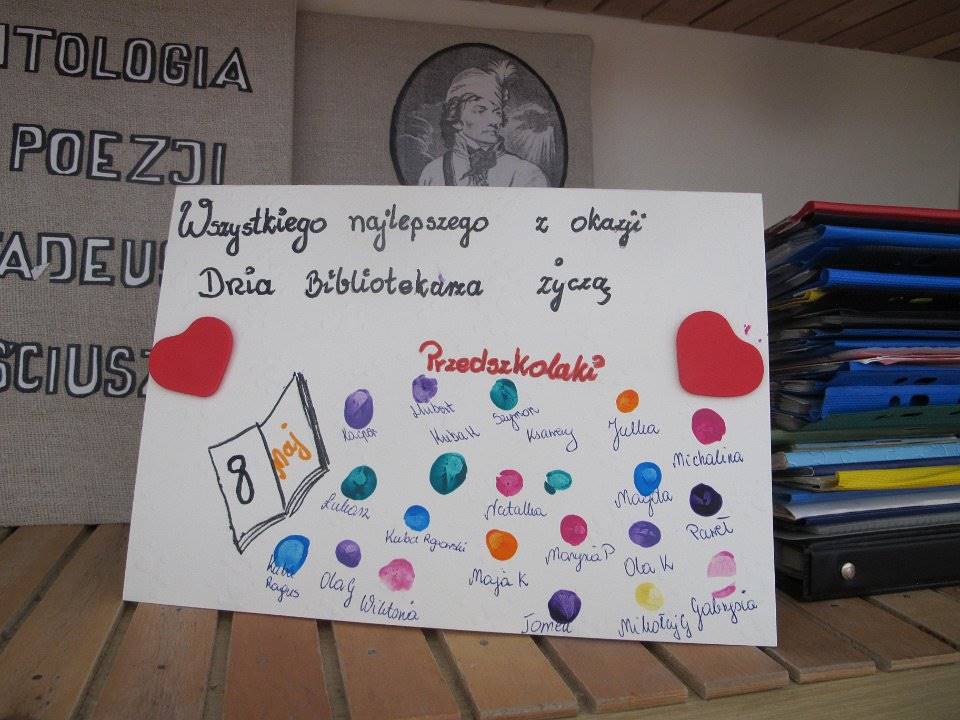 NTOLOGIA
POEZJI
ADEUS
ŚCIUSZ
Wszystkiego najlepszego z okazji
Dnia Bibliotekarza życzą
Przedszkolaki
8 Maj
Kacper
Hubert
Kuba K
Szymon
Ksawery
Julka
Michalina
Łukasz
Natalka
Magda
Paweł
Kuba Rogowski
Maja K
Marysia P
Ola K
Kuba
Rogus
Ola G
Wiktoria
Tomek
Mikołaj G
Gabrysia